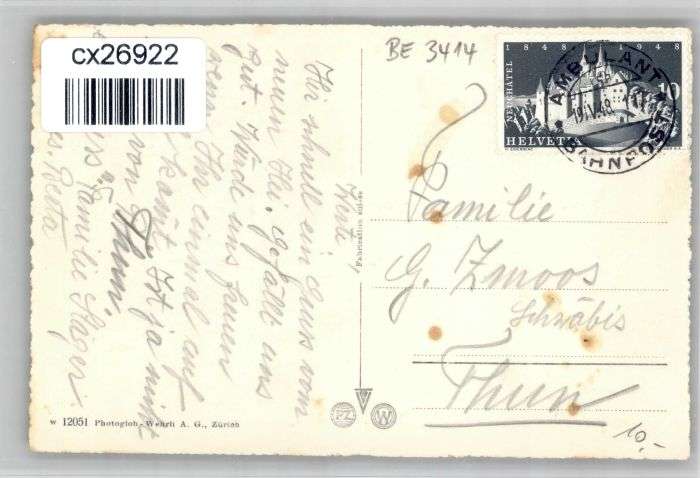 cx26922
BE 3414
1848 1948
NEUCHÂTEL
10
HELVETIA
AMBULANT
BAHNPOST
Werte
Ihr schnell ein Gruss vom
neuen Hei. gefällt uns
gut. Würde uns freuen
wenn Ihr einmal auf
kämt. Ist ja nicht
von Thun.
Familie Steger
Fabrication suisse
Familie
G. Zmoos
Schwäbis
Thun
10,-
W 12051 Photoglob-Wehrli A. G., Zürich
PZ
W